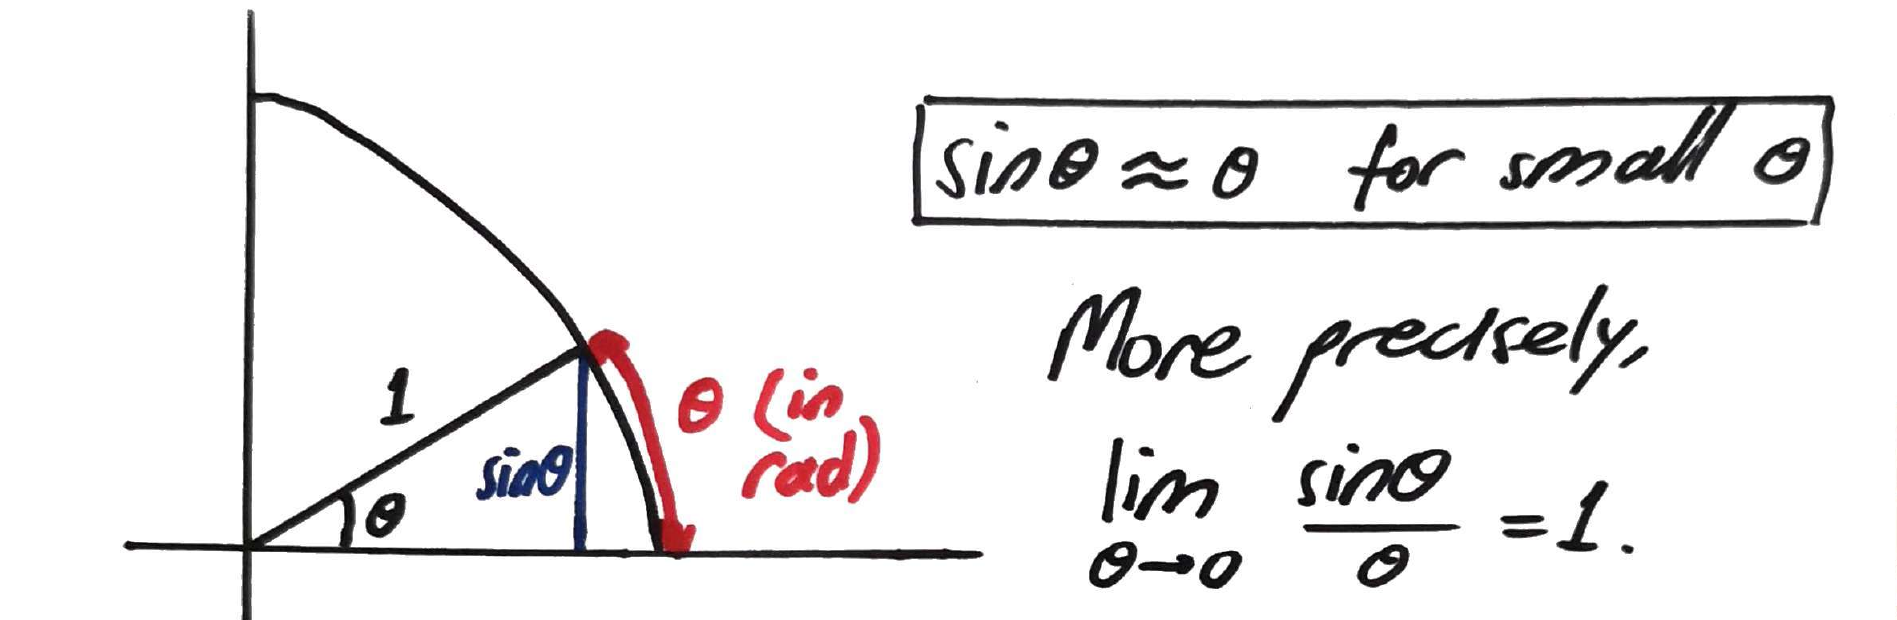 1
θ
sinθ
θ (in
rad)
sinθ ≈ θ for small θ
More precisely,
lim sinθ/θ = 1.
θ→0